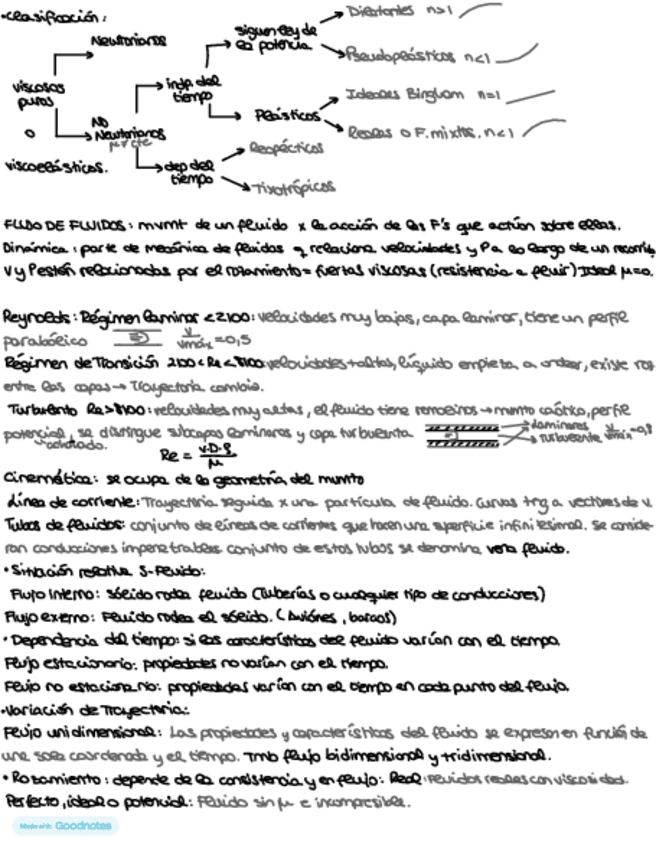 •Clasificación:
Dilatantes n>1
Newtonianos
siguen ley de
la potencia
Pseudoplásticos n<1
viscosos
puros
indp. del
tiempo
Ideales Bingham n=1
Plásticos
o
NO
Newtonianos
μ≠cte
Reales o F. mixtos. n<1
Reopécticos
viscoelásticos.
dep del
tiempo
Tixotrópicos
FLUJO DE FLUIDOS: mvmt de un fluido x la acción de las F's que actúan sobre ellas.
Dinámica: parte de mecánica de fluidos q relaciona velocidades y P a lo largo de un recorrido
V y P están relacionadas por el rozamiento = fuerzas viscosas (resistencia a fluir) Ideal μ=0.
Reynolds: Régimen laminar <2100: velocidades muy bajas, capa laminar, tiene un perfil
parabólico v/vmáx =0,5
Régimen de Transición 2100<Re< velocidades +altas, líquido empieza a ondear, existe
entre las capas → Trayectoria cambia.
Turbulento Re> velocidades muy altas, el fluido tiene remolinos → mvnto caótico, perfil
potencial, se distingue subcapas laminares y capa turbulenta laminares
achatado. Turbulenta v/vmáx =0,8
Re = v·D·ρ/μ
Cinemática: se ocupa de la geometría del mvnto
Línea de corriente: Trayectoria seguida x una partícula de fluido. Curvas tng a vectores de v.
Tubos de fluidos: conjunto de líneas de corrientes que hacen una superficie infinitesimal. Se conside-
ran conducciones impenetrables conjunto de estos tubos se denomina vena fluido.
• Situación relativa S-Fluido:
Flujo Interno: sólido rodea fluido (Tuberías o cualquier tipo de conducciones)
Flujo externo: Fluido rodea el sólido. (Aviónes, barcos)
• Dependencia del tiempo: si las características del fluido varían con el tiempo.
Flujo estacionario: propiedades no varían con el tiempo.
Flujo no estacionario: propiedades varían con el tiempo en cada punto del flujo.
•Variación de Trayectoria:
Flujo unidimensional: Las propiedades y características del fluido se expresan en función de
una sola coordenada y el tiempo. Tmb flujo bidimensional y tridimensional.
• Rozamiento: depende de la consistencia y en flujo: Real: Fluidos reales con viscosidad.
Perfecto, ideal o potencial: Fluido sin μ e incompresible.
Made with Goodnotes